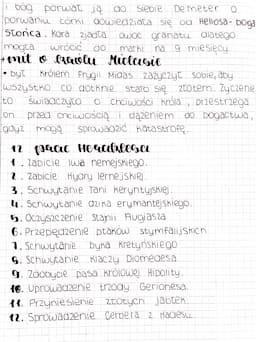 i bóg porwał ją do siebie. Demeter o
porwaniu córki dowiedziała się od Heliosa- boga
Słońca. Kora zjadła owoc granatu dlatego
mogła wrócić do matki na 9 miesięcy.
• mit o królu Midasie
• był królem Frygii Midas zażyczył sobie, aby
wszystko co dotknie stało się złotem. Życzenie
to świadczyło o chciwości króla, przestrzega
on przed chciwością i dążeniem do bogactwa,
gdyż mogą sprowadzić katastrofę.
12 prac Heraklesa
1. Zabicie lwa nemejskiego.
2. Zabicie Hydry lernejskiej.
3. Schwytanie łani keryntyjskiej.
4. Schwytanie dzika erymantejskiego.
5. Oczyszczenie stajni Augiasza
6. Przepędzenie ptaków stymfalijskich
7. Schwytanie byka kreteńskiego
8. Schwytanie klaczy Diomedesa.
9. Zdobycie pasa królowej Hipolity.
10. Uprowadzenie trzody Geriona.
11. Przyniesienie złotych jabłek.
12. Sprowadzenie Cerbera z Hadesu.